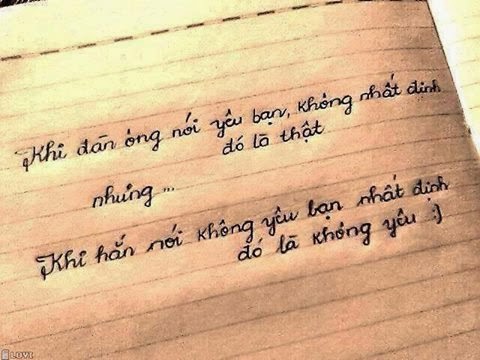 Khi đàn ông nói yêu bạn, không nhất định
đó là thật
nhưng...
Khi hắn nói không yêu bạn nhất định
đó là không yêu :)
LOVE